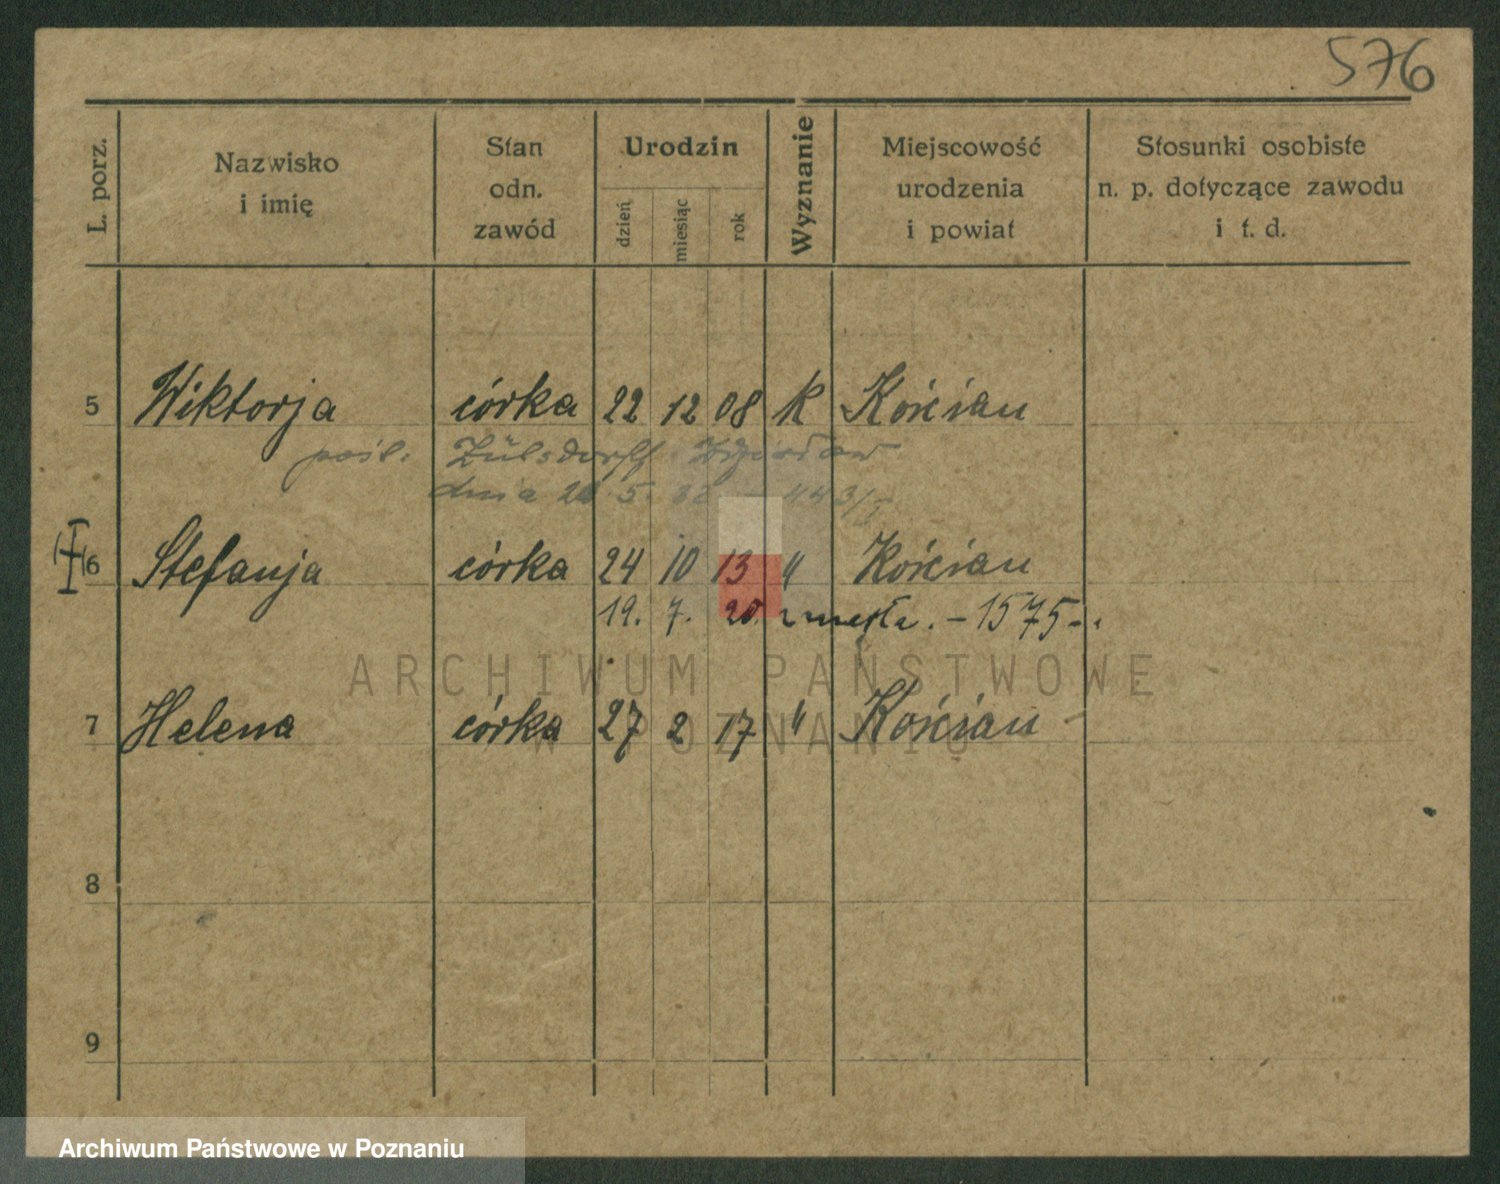 576
L. porz.
Nazwisko
i imię
Stan
odn.
zawód
Urodzin
dzień
miesiąc
rok
Wyznanie
Miejscowość
urodzenia
i powiat
Stosunki osobiste
n. p. dotyczące zawodu
i t. d.
5 Wiktorja córka 22 12 08 k Kościan
pośl. Zülsdorff
dnia 5. 443/I
6 Stefanja córka 24 10 13 " Kościan
19. 7. 20. zmarła. - 1575 -.
ARCHIWUM PAŃSTWOWE
W POZNANIU
7 Helena córka 27 2 17 " Kościan
8
9
Archiwum Państwowe w Poznaniu